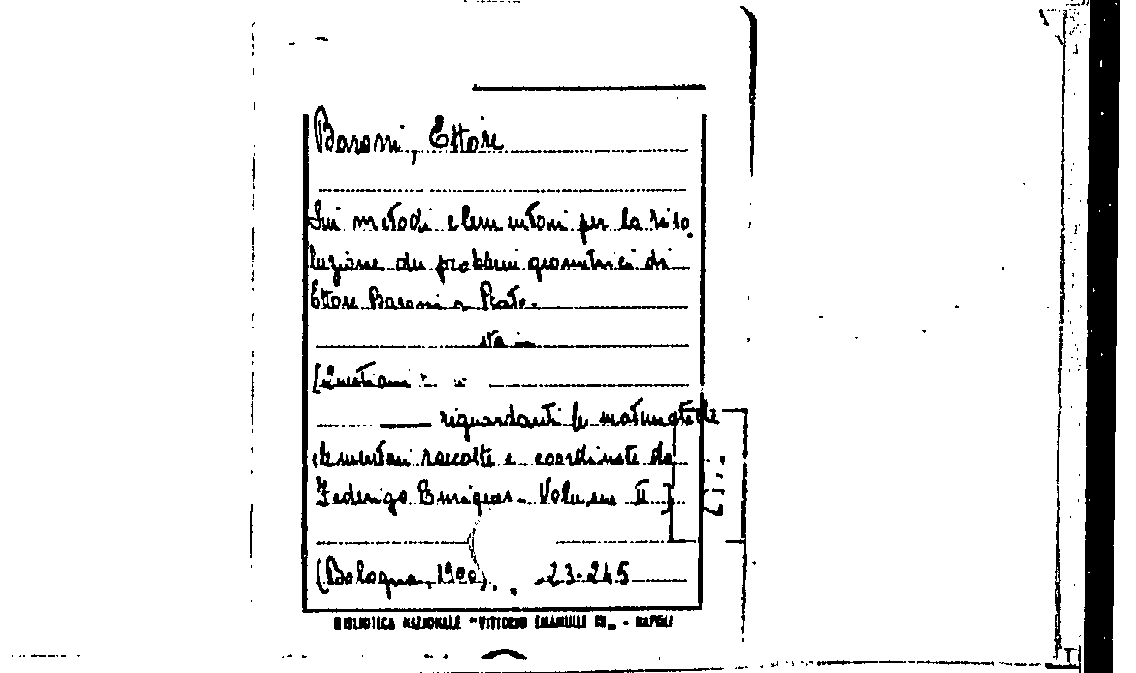 Baroni, Ettore
Sui metodi elementari per la riso
luzione dei problemi geometrici di
Ettore Baroni a Prato.
sta in
[Questioni
riguardanti le matematiche
elementari raccolte e coordinate da
Federigo Enriques. Volume II]
(Bologna, 1900). 23.245
BIBLIOTECA NAZIONALE "VITTORIO EMANUELE III„ - NAPOLI